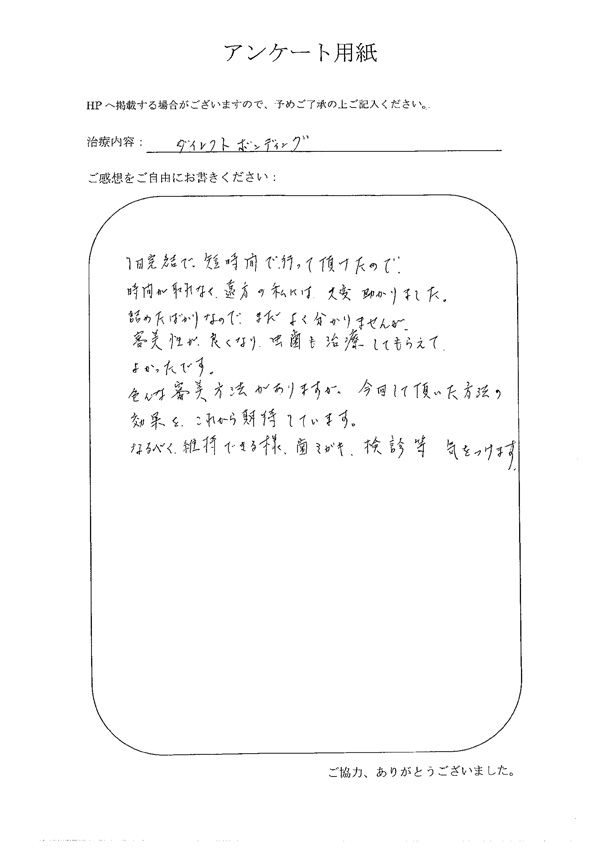 アンケート用紙
HPへ掲載する場合がございますので、予めご了承の上ご記入ください。
治療内容： ダイレクトボンディング
ご感想をご自由にお書きください：
1日完結で、短時間で行って頂けたので、
時間が取れなく、遠方の私には、大変助かりました。
詰めたばかりなので、まだよく分かりませんが、
審美性が、良くなり、虫歯も治療してもらえて、
よかったです。
色んな審美方法がありますが、今回して頂いた方法の
効果を、これから期待しています。
なるべく、維持できる様、歯ミガキ、検診等 気をつけます。
ご協力、ありがとうございました。